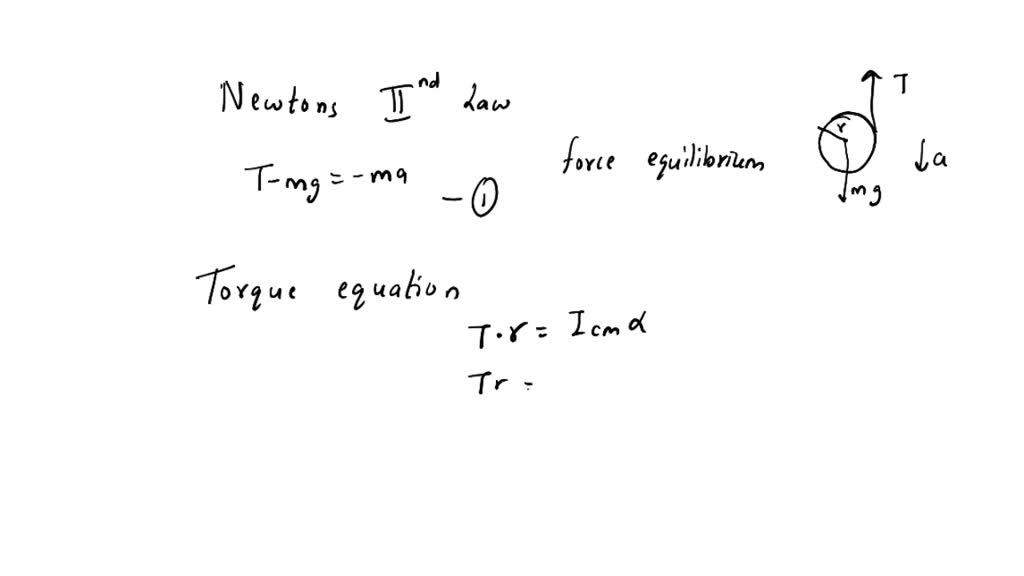 Newtons IInd Law
T-mg = -ma - ①
force equilibrium
T
r
↓a
mg
Torque equation
T·r = Icm α
Tr =